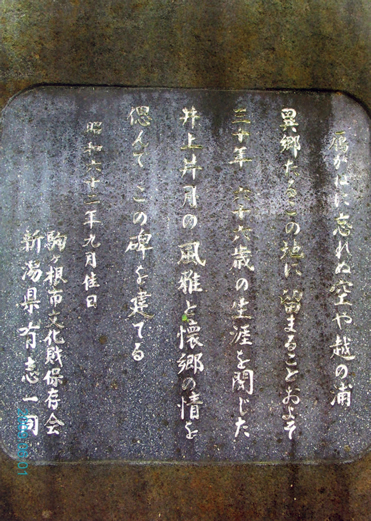 雁がねに忘れぬ空や越の浦
異郷たるこの地に留まることおよそ
三十年 六十六歳の生涯を閉じた
井上井月の風雅と懐郷の情を
偲んでこの碑を建てる
昭和六十二年九月佳日
駒ヶ根市文化財保存会
新潟県有志一同